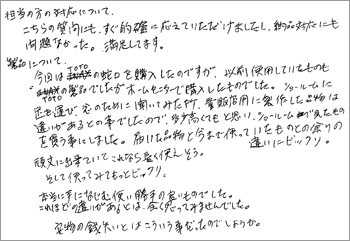 担当の方の対応について、
こちらの質問にも、すぐ的確に応えていただけましたし、納品対応にも
問題なかった。満足してます。
製品について、
今回はTOTOの蛇口を購入したのですが、以前使用していたものも
TOTOの製品でしたがホームセンターで購入したものでした。ショールームに
足を運び、念のために聞いてみた所、量販店用に製作した品物は
違いがあるとの事でしたので、多少高くてもと思い、ショールームで見たもの
を買う事にしました。届いた品物と今まで使っていたものとの余りの
違いにビックリ。
頑丈に出来ていてこれなら長く使えそう。
そして使ってみてもっとビックリ。
本当に手になじむ使い勝手の良いものでした。
これほどの違いがあるとは、全く思ってみませんでした。
安物の銭失いとはこういう事だったのでしょうか。